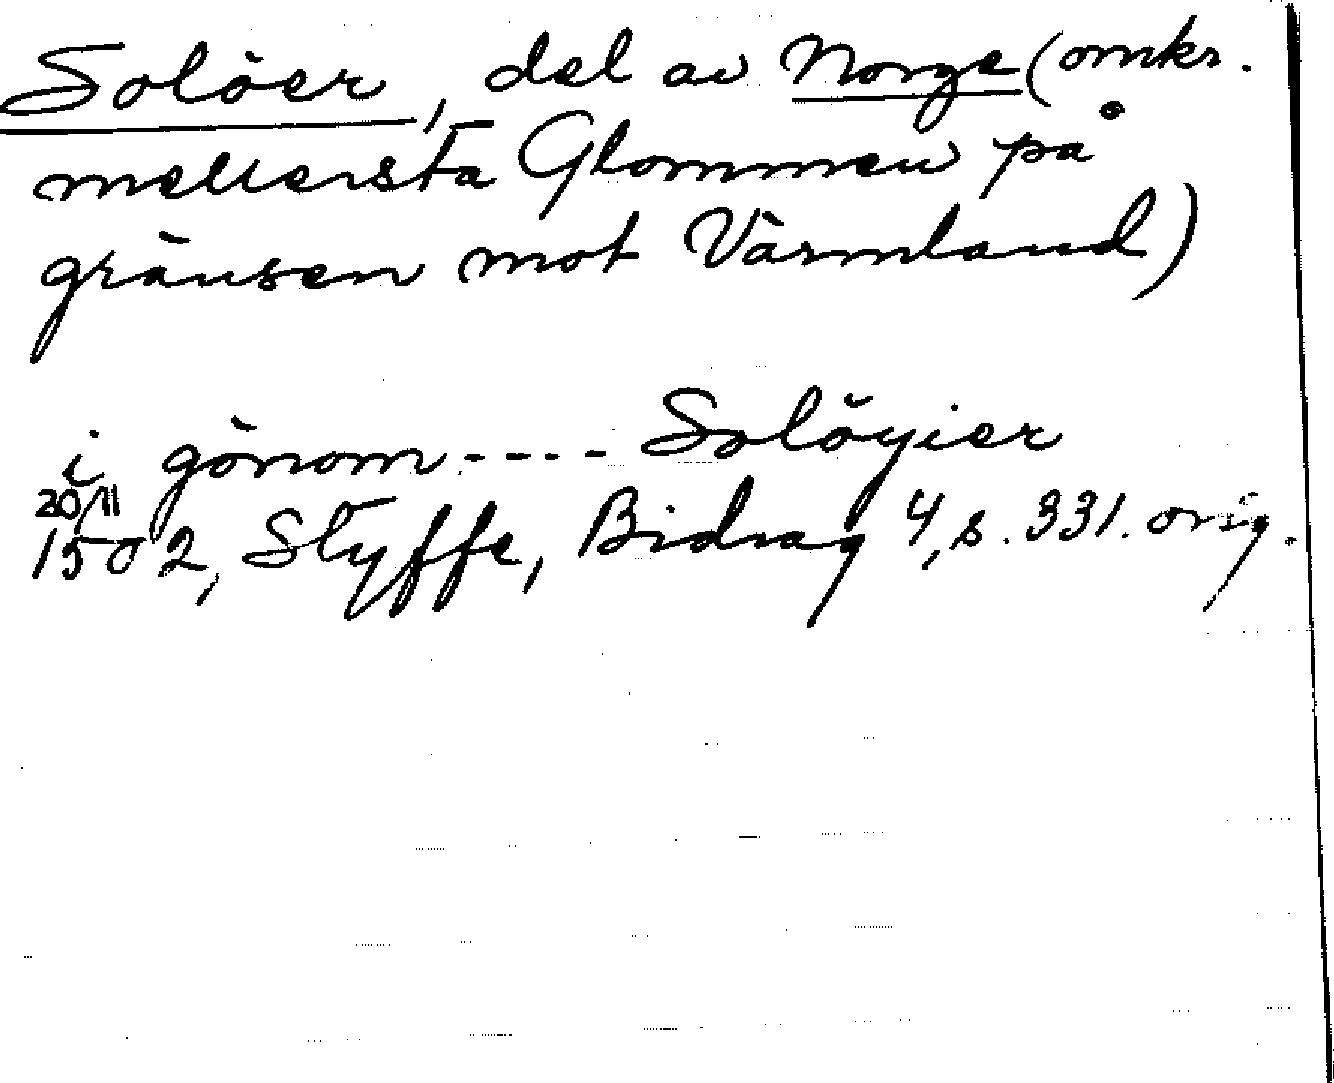 Solöer, del av Norge (omkr.
mellersta Glommen på
gränsen mot Värmland)
i gönom ---- Solöyier
20/11
1502, Styffe, Bidrag 4, s. 331. orig.